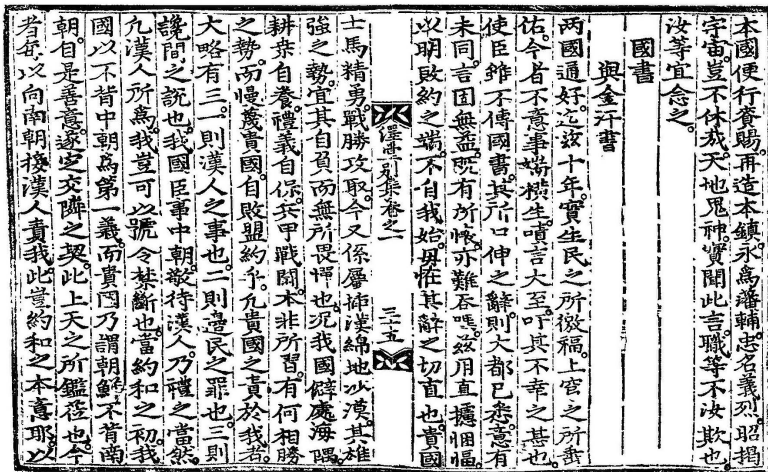 本國便行賚賜再造本鎮永爲藩輔忠名義烈昭揭
宇宙豈不休哉天地鬼神實聞此言職等不汝欺也
汝等宜念之
國書
與金汗書
两國通好迄玆十年實生民之所徼福上穹之所垂
佑今者不意事端橫生嘖言大至吁其不幸之甚也
使臣雖不傳國書其所口伸之辭則大都已悉意有
未同言固無益旣有所懷亦難吞嘿玆用直攄悃愊
以明敗約之端不自我始毋恠其辭之切直也貴國
澤堂別集卷之一 三十五
士馬精勇戰勝攻取今又係屬揷漢綿地沙漠其雄
強之勢宜其自負而無所畏憚也況我國僻處海隅
耕桒自養禮義自保兵甲戰鬪本非所習有何相勝
之勢而慢蔑貴國自敗盟約乎凢貴國之責於我者
大略有三一則漢人之事也二則邊民之罪也三則
讒間之說也我國臣事中朝敬待漢人乃禮之當然
凢漢人所爲我豈可以號令禁斷也當約和之初我
國以不背中朝爲第一義而貴國乃謂朝鮮不背南
朝自是善意遂定交隣之契此上天之所鑑莅也今
者每以向南朝接漢人責我此豈約和之本意耶以